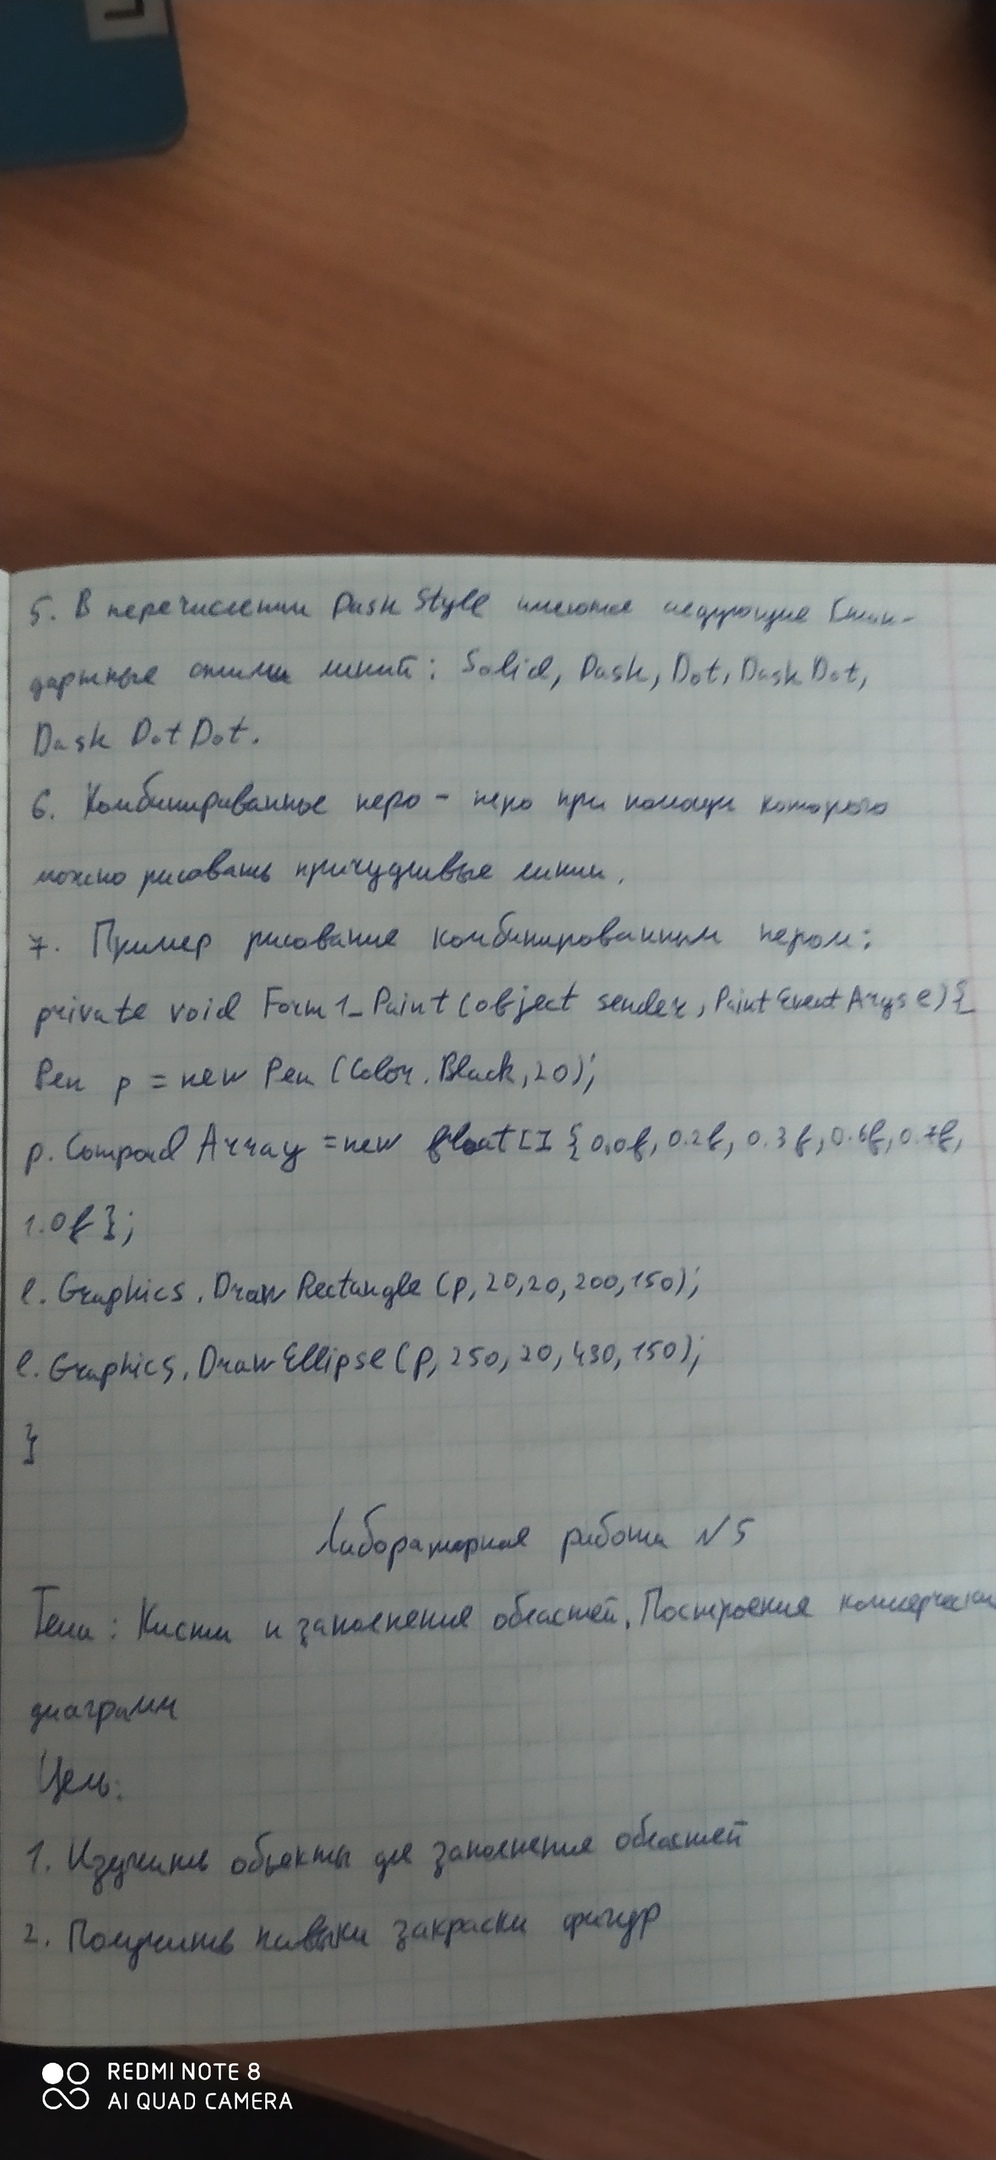 L
5. В перечислении Dash Style имеются следующие Стан-
дартные стили линий: Solid, Dash, Dot, Dash Dot,
Dash Dot Dot.
6. Комбинированное перо - перо при помощи которого
можно рисовать причудливые линии.
7. Пример рисование комбинированным пером:
private void Form1_Paint (object sender, PaintEventArgs e) {
Pen p = new Pen (Color. Black, 20);
p. Compond Array = new float [] { 0.0f, 0.2f, 0.3f, 0.6f, 0.7f,
1.0f };
e. Graphics. Draw Rectangle (p, 20, 20, 200, 150);
e. Graphics. Draw Ellipse (p, 250, 20, 430, 150);
}
Лабораторная работа №5
Тема: Кисти и заполнения областей. Построения коммерческих
диаграмм
Цель:
1. Изучить объекты для заполнения областей
2. Получить навыки закраски фигур
REDMI NOTE 8
AI QUAD CAMERA